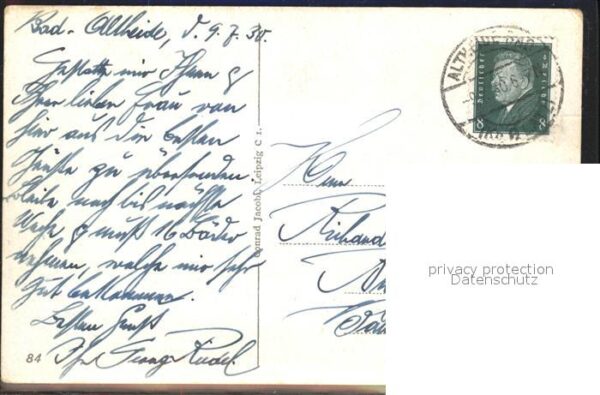 Bad-Altheide, d. 9.7.30.
Gestatte mir Ihnen &
Ihrer lieben Frau von
hier aus die besten
Grüße zu übersenden.
Bleibe noch bis nächste
Woche & muß 16 Bäder
nehmen, welche mir sehr
gut bekommen.
Besten Gruß
Ihr Georg Riedel
84
Conrad Jacobi, Leipzig C 1.
Deutsches Reich
8
8
Herrn
Richard
privacy protection
Datenschutz